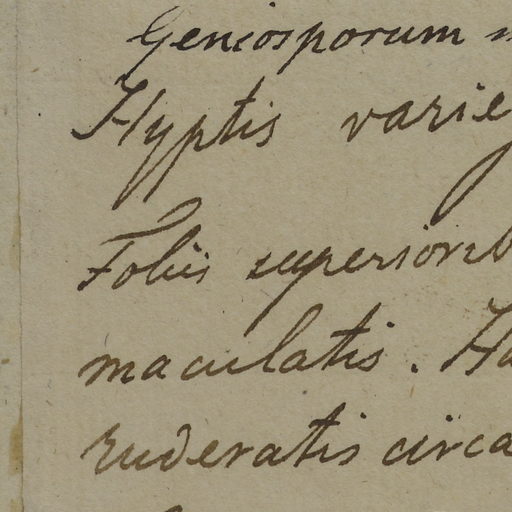 Geniosporum
Hyptis varie
Foliis superiorib
maculatis. Ha
ruderatis circa